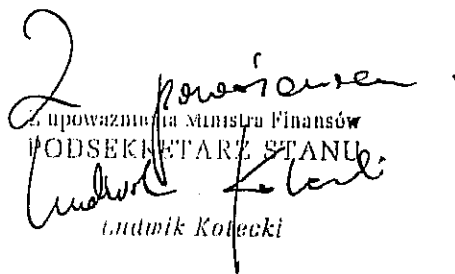 Z poważaniem
Z upoważnienia Ministra Finansów
PODSEKRETARZ STANU
Ludwik Kotecki
Ludwik Kotecki